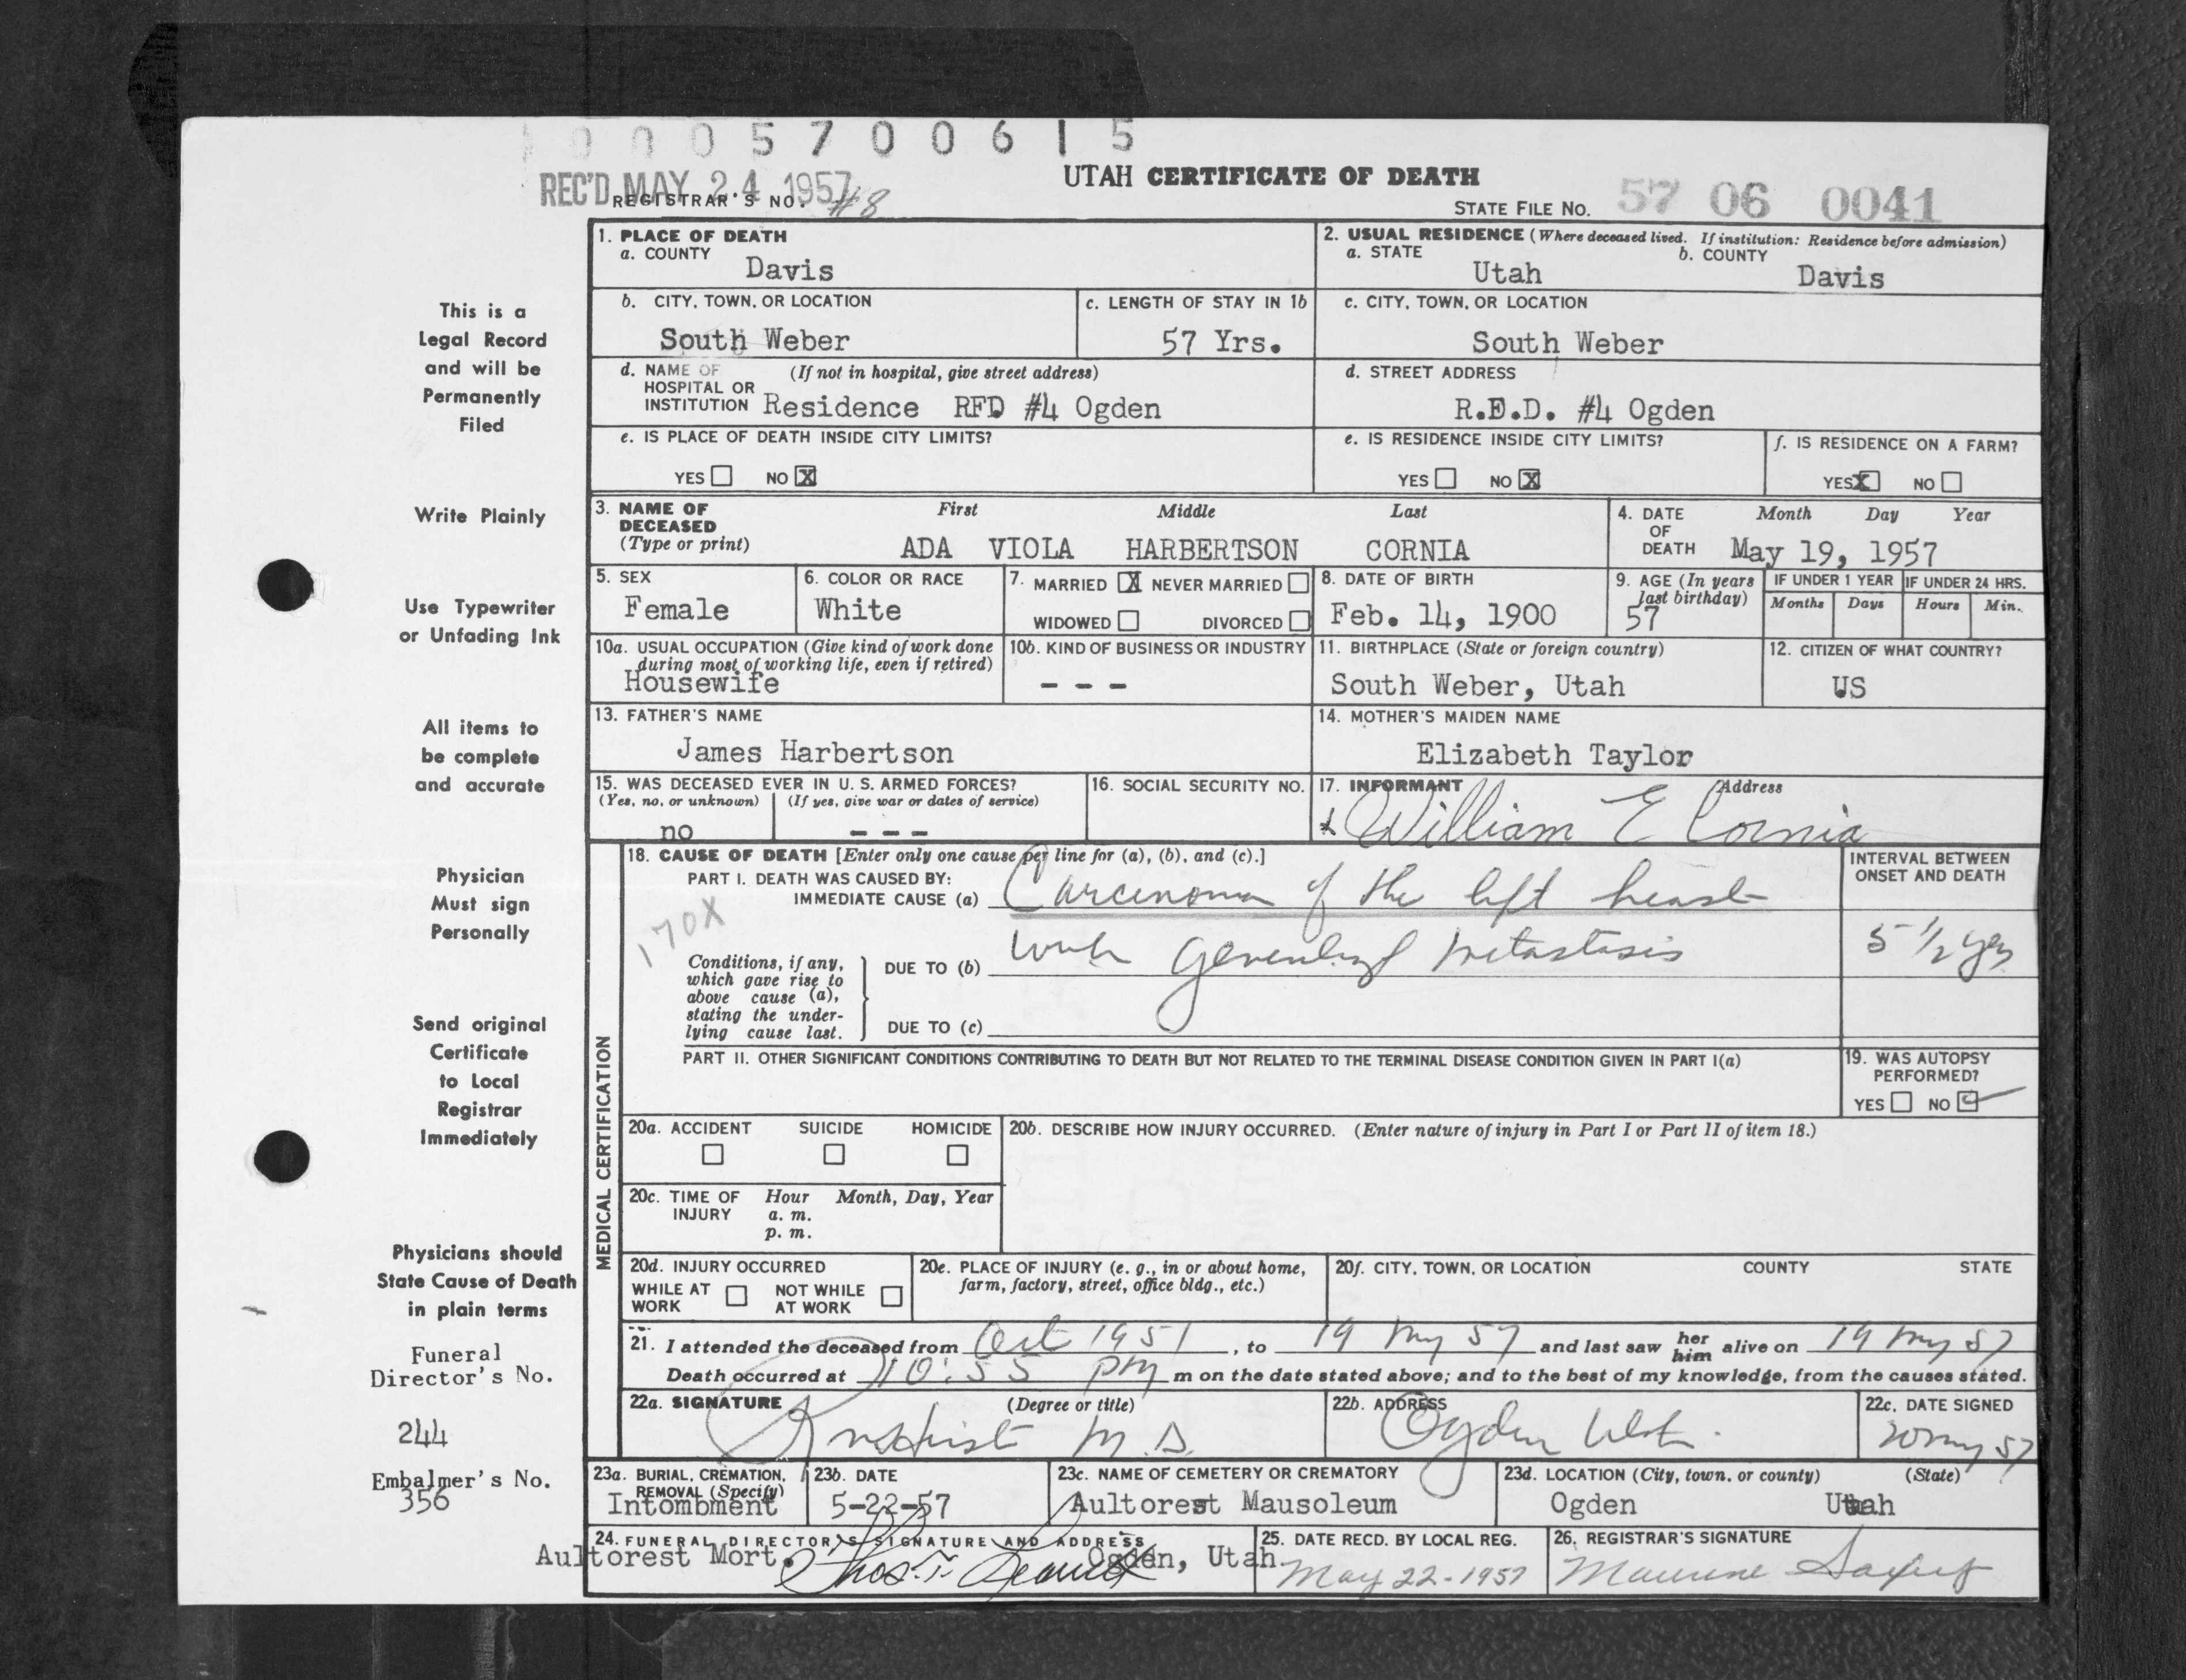 0005700615
REC'D MAY 24 1957
UTAH CERTIFICATE OF DEATH
REGISTRAR'S NO. #8
STATE FILE NO. 57 06 0041
1. PLACE OF DEATH
a. COUNTY
Davis
2. USUAL RESIDENCE (Where deceased lived. If institution: Residence before admission)
a. STATE b. COUNTY
Utah Davis
b. CITY, TOWN, OR LOCATION
South Weber
c. LENGTH OF STAY IN 1b
57 Yrs.
c. CITY, TOWN, OR LOCATION
South Weber
d. NAME OF (If not in hospital, give street address)
HOSPITAL OR
INSTITUTION Residence RFD #4 Ogden
d. STREET ADDRESS
R.E.D. #4 Ogden
e. IS PLACE OF DEATH INSIDE CITY LIMITS?
YES NO X
e. IS RESIDENCE INSIDE CITY LIMITS?
YES NO X
f. IS RESIDENCE ON A FARM?
YES X NO
3. NAME OF First Middle Last
DECEASED
(Type or print) ADA VIOLA HARBERTSON CORNIA
4. DATE Month Day Year
OF
DEATH May 19, 1957
5. SEX
Female
6. COLOR OR RACE
White
7. MARRIED X NEVER MARRIED
WIDOWED DIVORCED
8. DATE OF BIRTH
Feb. 14, 1900
9. AGE (In years
last birthday)
57
IF UNDER 1 YEAR IF UNDER 24 HRS.
Months Days Hours Min.
10a. USUAL OCCUPATION (Give kind of work done
during most of working life, even if retired)
Housewife
10b. KIND OF BUSINESS OR INDUSTRY
- - -
11. BIRTHPLACE (State or foreign country)
South Weber, Utah
12. CITIZEN OF WHAT COUNTRY?
US
13. FATHER'S NAME
James Harbertson
14. MOTHER'S MAIDEN NAME
Elizabeth Taylor
15. WAS DECEASED EVER IN U. S. ARMED FORCES?
(Yes, no, or unknown) (If yes, give war or dates of service)
no - - -
16. SOCIAL SECURITY NO.
17. INFORMANT Address
x William E Cornia
MEDICAL CERTIFICATION
18. CAUSE OF DEATH [Enter only one cause per line for (a), (b), and (c).]
PART I. DEATH WAS CAUSED BY:
IMMEDIATE CAUSE (a) Carcinoma of the left breast
170X
Conditions, if any,
which gave rise to
above cause (a),
stating the under-
lying cause last.
DUE TO (b) with generalized metastasis
DUE TO (c)
INTERVAL BETWEEN
ONSET AND DEATH
5 1/2 yrs
PART II. OTHER SIGNIFICANT CONDITIONS CONTRIBUTING TO DEATH BUT NOT RELATED TO THE TERMINAL DISEASE CONDITION GIVEN IN PART I(a)
19. WAS AUTOPSY
PERFORMED?
YES NO
20a. ACCIDENT SUICIDE HOMICIDE
20b. DESCRIBE HOW INJURY OCCURRED. (Enter nature of injury in Part I or Part II of item 18.)
20c. TIME OF Hour Month, Day, Year
INJURY a. m.
p. m.
20d. INJURY OCCURRED
WHILE AT NOT WHILE
WORK AT WORK
20e. PLACE OF INJURY (e. g., in or about home,
farm, factory, street, office bldg., etc.)
20f. CITY, TOWN, OR LOCATION COUNTY STATE
21. I attended the deceased from Oct 1951, to 19 May 57 and last saw her him alive on 19 May 57
Death occurred at 10:55 pm m on the date stated above; and to the best of my knowledge, from the causes stated.
22a. SIGNATURE (Degree or title)
M.D.
22b. ADDRESS
Ogden Utah.
22c. DATE SIGNED
20 May 57
23a. BURIAL, CREMATION,
REMOVAL (Specify)
Intombment
23b. DATE
5-22-57
23c. NAME OF CEMETERY OR CREMATORY
Aultorest Mausoleum
23d. LOCATION (City, town, or county) (State)
Ogden Utah
24. FUNERAL DIRECTOR'S SIGNATURE AND ADDRESS
Aultorest Mort. Thos. Ogden, Utah
25. DATE RECD. BY LOCAL REG.
May 22-1957
26. REGISTRAR'S SIGNATURE
Maurine
This is a
Legal Record
and will be
Permanently
Filed
Write Plainly
Use Typewriter
or Unfading Ink
All items to
be complete
and accurate
Physician
Must sign
Personally
Send original
Certificate
to Local
Registrar
Immediately
Physicians should
State Cause of Death
in plain terms
Funeral
Director's No.
244
Embalmer's No.
356